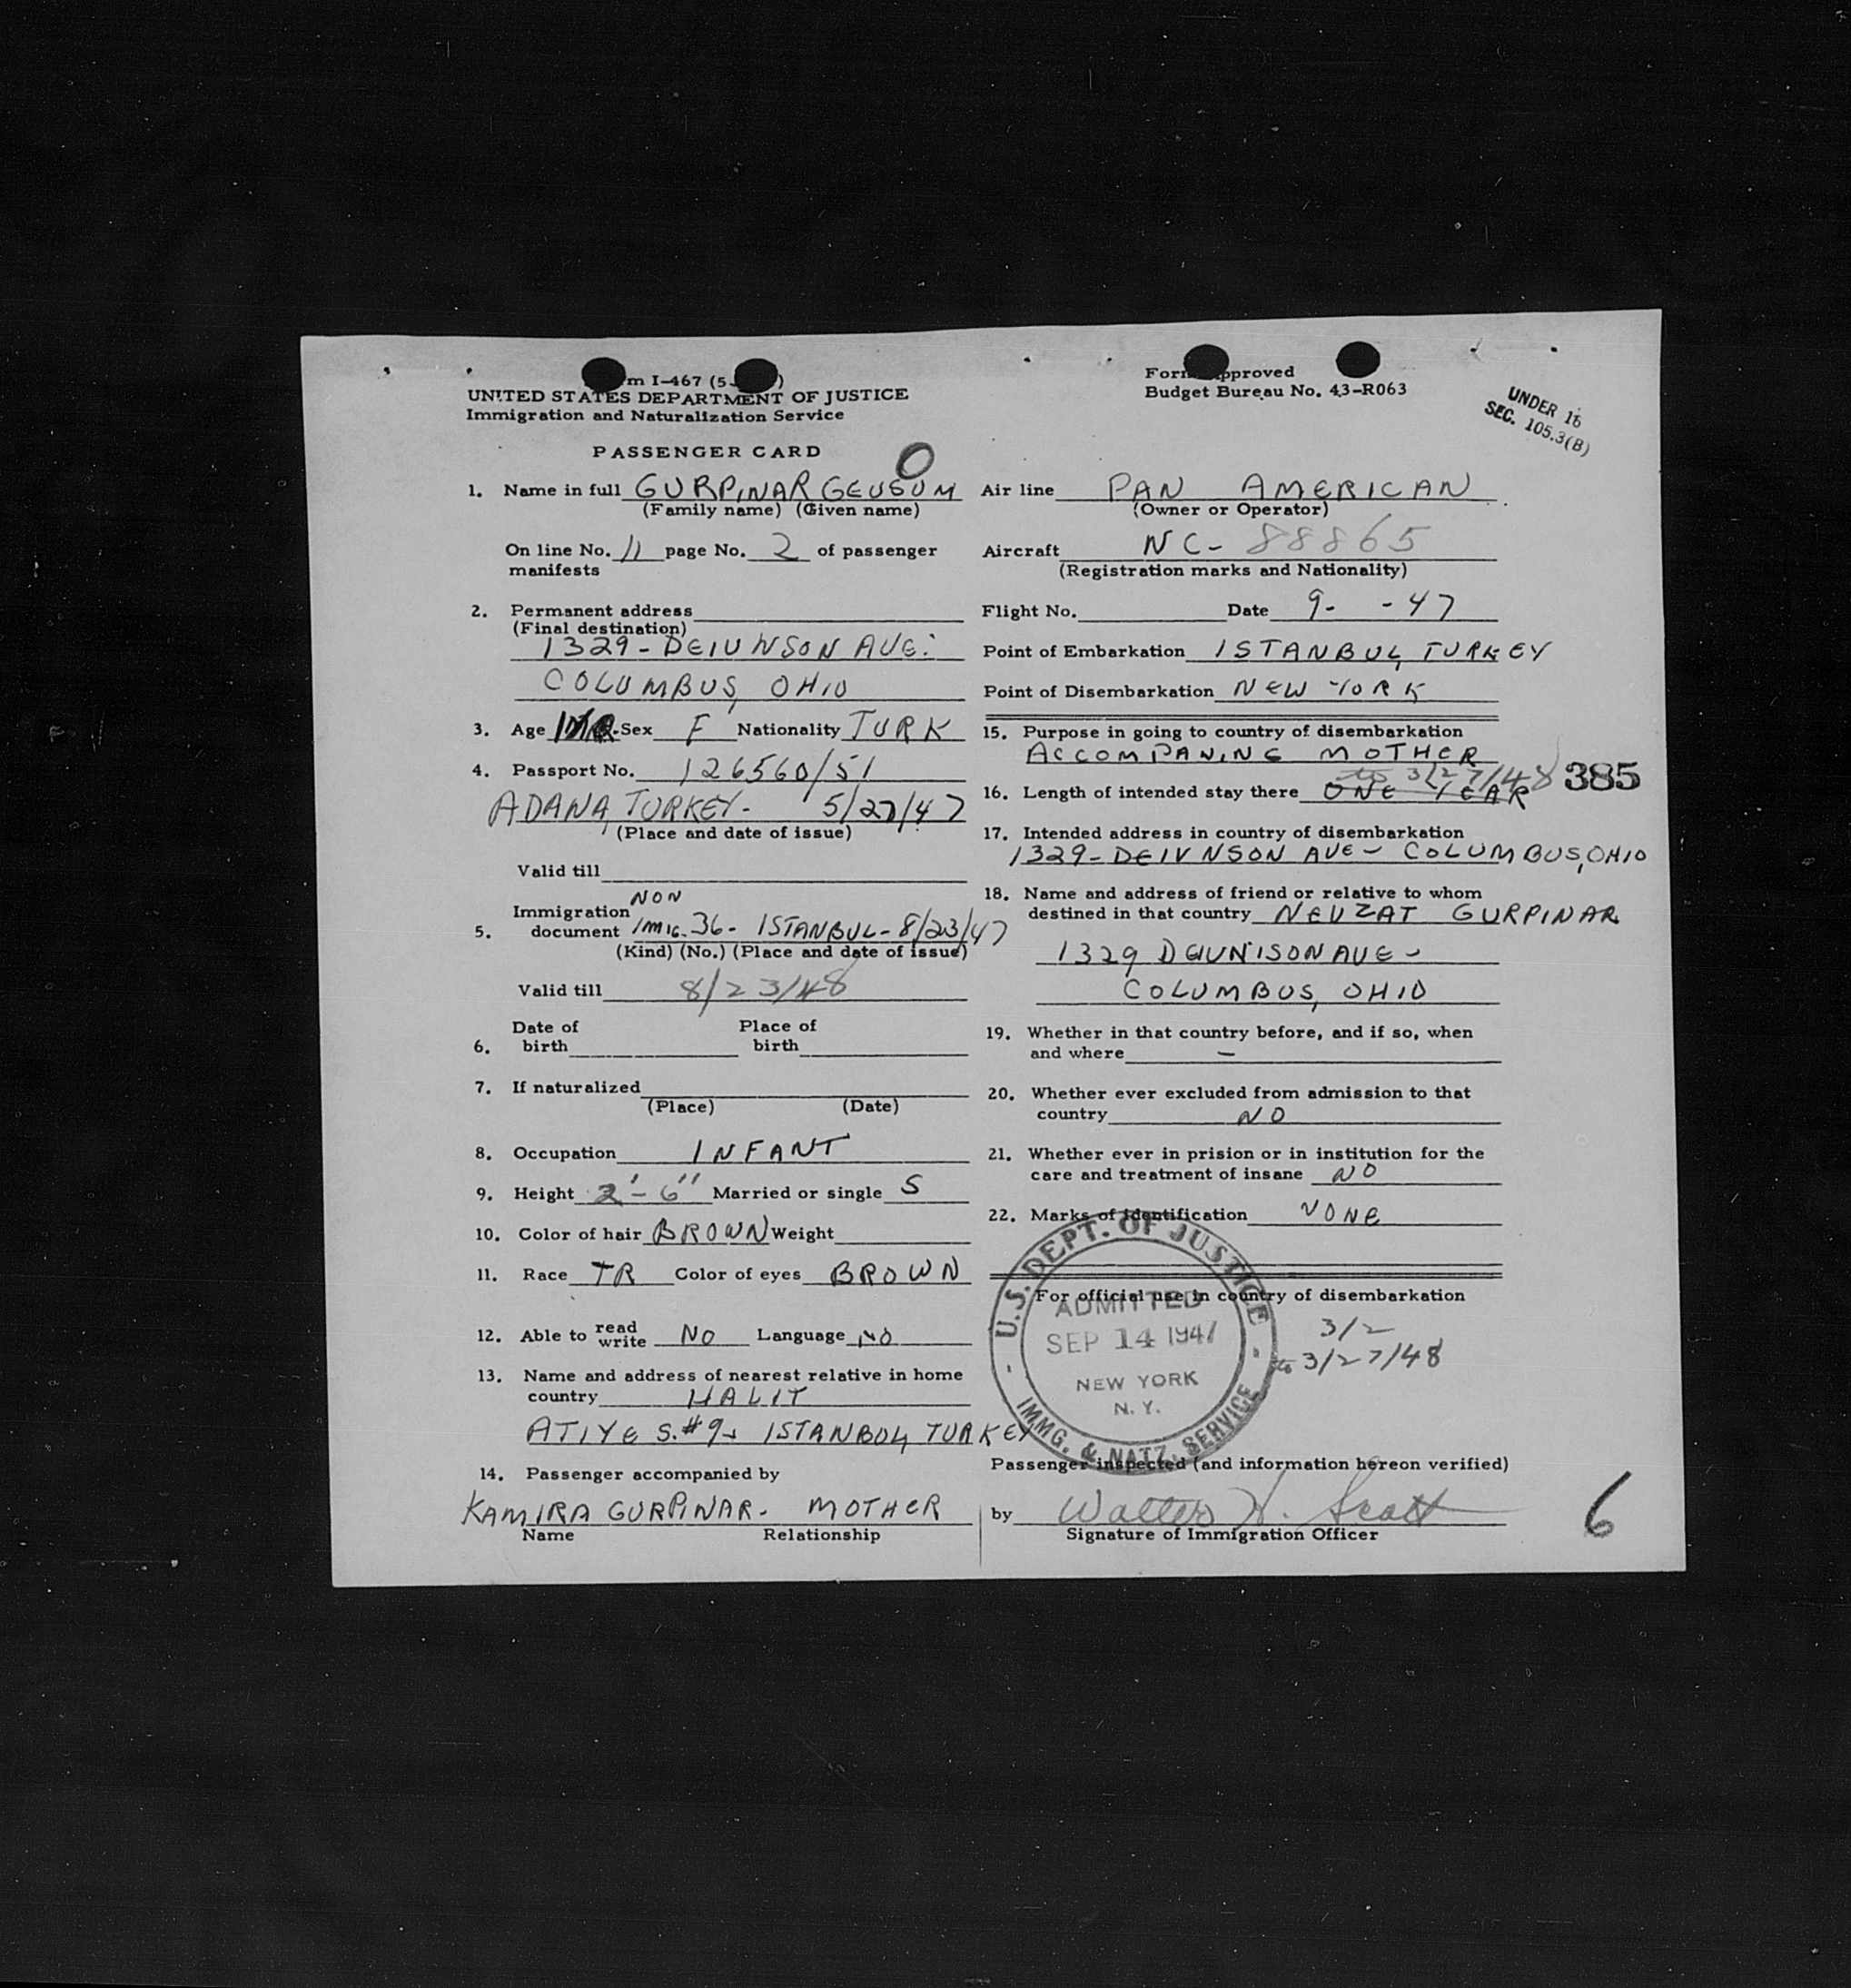 m I-467 (5-
UNITED STATES DEPARTMENT OF JUSTICE
Immigration and Naturalization Service
Form Approved
Budget Bureau No. 43-R063
UNDER 16
SEC. 105.3(B)
PASSENGER CARD
0
1. Name in full GURPINAR GEUSUM
(Family name) (Given name)
On line No. 11 page No. 2 of passenger
manifests
2. Permanent address
(Final destination)
1329-DEIUNSON AVE.
COLUMBUS, OHIO
3. Age Sex F Nationality TURK
4. Passport No. 126560/51
ADANA, TURKEY- 5/27/47
(Place and date of issue)
Valid till
NON
Immigration
5. document IMIG. 36- ISTANBUL-8/23/47
(Kind) (No.) (Place and date of issue)
Valid till 8/23/48
Date of Place of
6. birth birth
7. If naturalized
(Place) (Date)
8. Occupation INFANT
9. Height 2'-6" Married or single S
10. Color of hair BROWN Weight
11. Race TR Color of eyes BROWN
12. Able to read write NO Language NO
13. Name and address of nearest relative in home
country HALIT
ATIYE S.#9- ISTANBOL, TURKEY
14. Passenger accompanied by
KAMIRA GURPINAR- MOTHER
Name Relationship
Air line PAN AMERICAN
(Owner or Operator)
Aircraft NC-88865
(Registration marks and Nationality)
Flight No. Date 9- -47
Point of Embarkation ISTANBUL, TURKEY
Point of Disembarkation NEW YORK
15. Purpose in going to country of disembarkation
ACCOMPANING MOTHER
to 3/27/48 385
16. Length of intended stay there ONE YEAR
17. Intended address in country of disembarkation
1329-DEIVNSON AVE- COLUMBUS, OHIO
18. Name and address of friend or relative to whom
destined in that country NEUZAT GURPINAR
1329 DEIUNISON AVE-
COLUMBUS, OHIO
19. Whether in that country before, and if so, when
and where -
20. Whether ever excluded from admission to that
country NO
21. Whether ever in prision or in institution for the
care and treatment of insane NO
22. Marks of identification NONE
For official use in country of disembarkation
U.S. DEPT. OF JUSTICE
ADMITTED
SEP 14 1947
NEW YORK
N. Y.
IMMG. & NATZ. SERVICE
3/2
to 3/27/48
Passenger inspected (and information hereon verified)
by Walter H. Scott
Signature of Immigration Officer
6